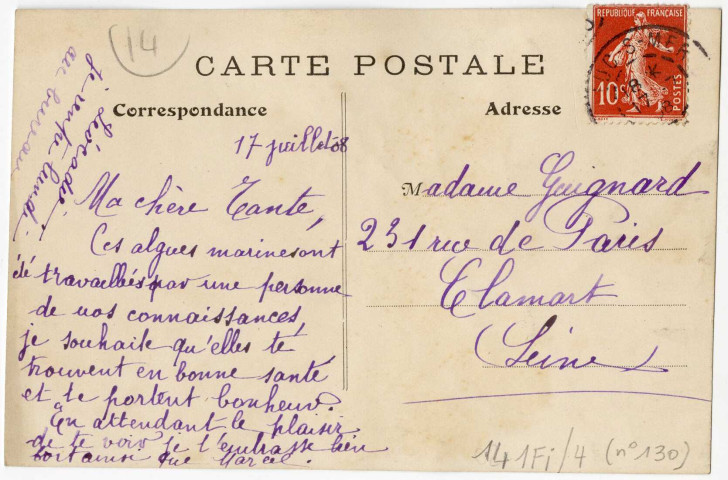 14
CARTE POSTALE
Correspondance
Adresse
RÉPUBLIQUE FRANÇAISE
10c
POSTES
17 juillet 08
Ma chère Tante,
Ces algues marines ont
été travaillés par une personne
de nos connaissances,
je souhaite qu'elles te
trouvent en bonne santé
et te portent bonheur.
En attendant le plaisir
de te voir je t'embrasse bien
fort ainsi que Marcel.
Léocadie
je rentre lundi
au bureau
Madame Guignard
231 rue de Paris
Clamart
Seine
141Fi/4 (n°130)